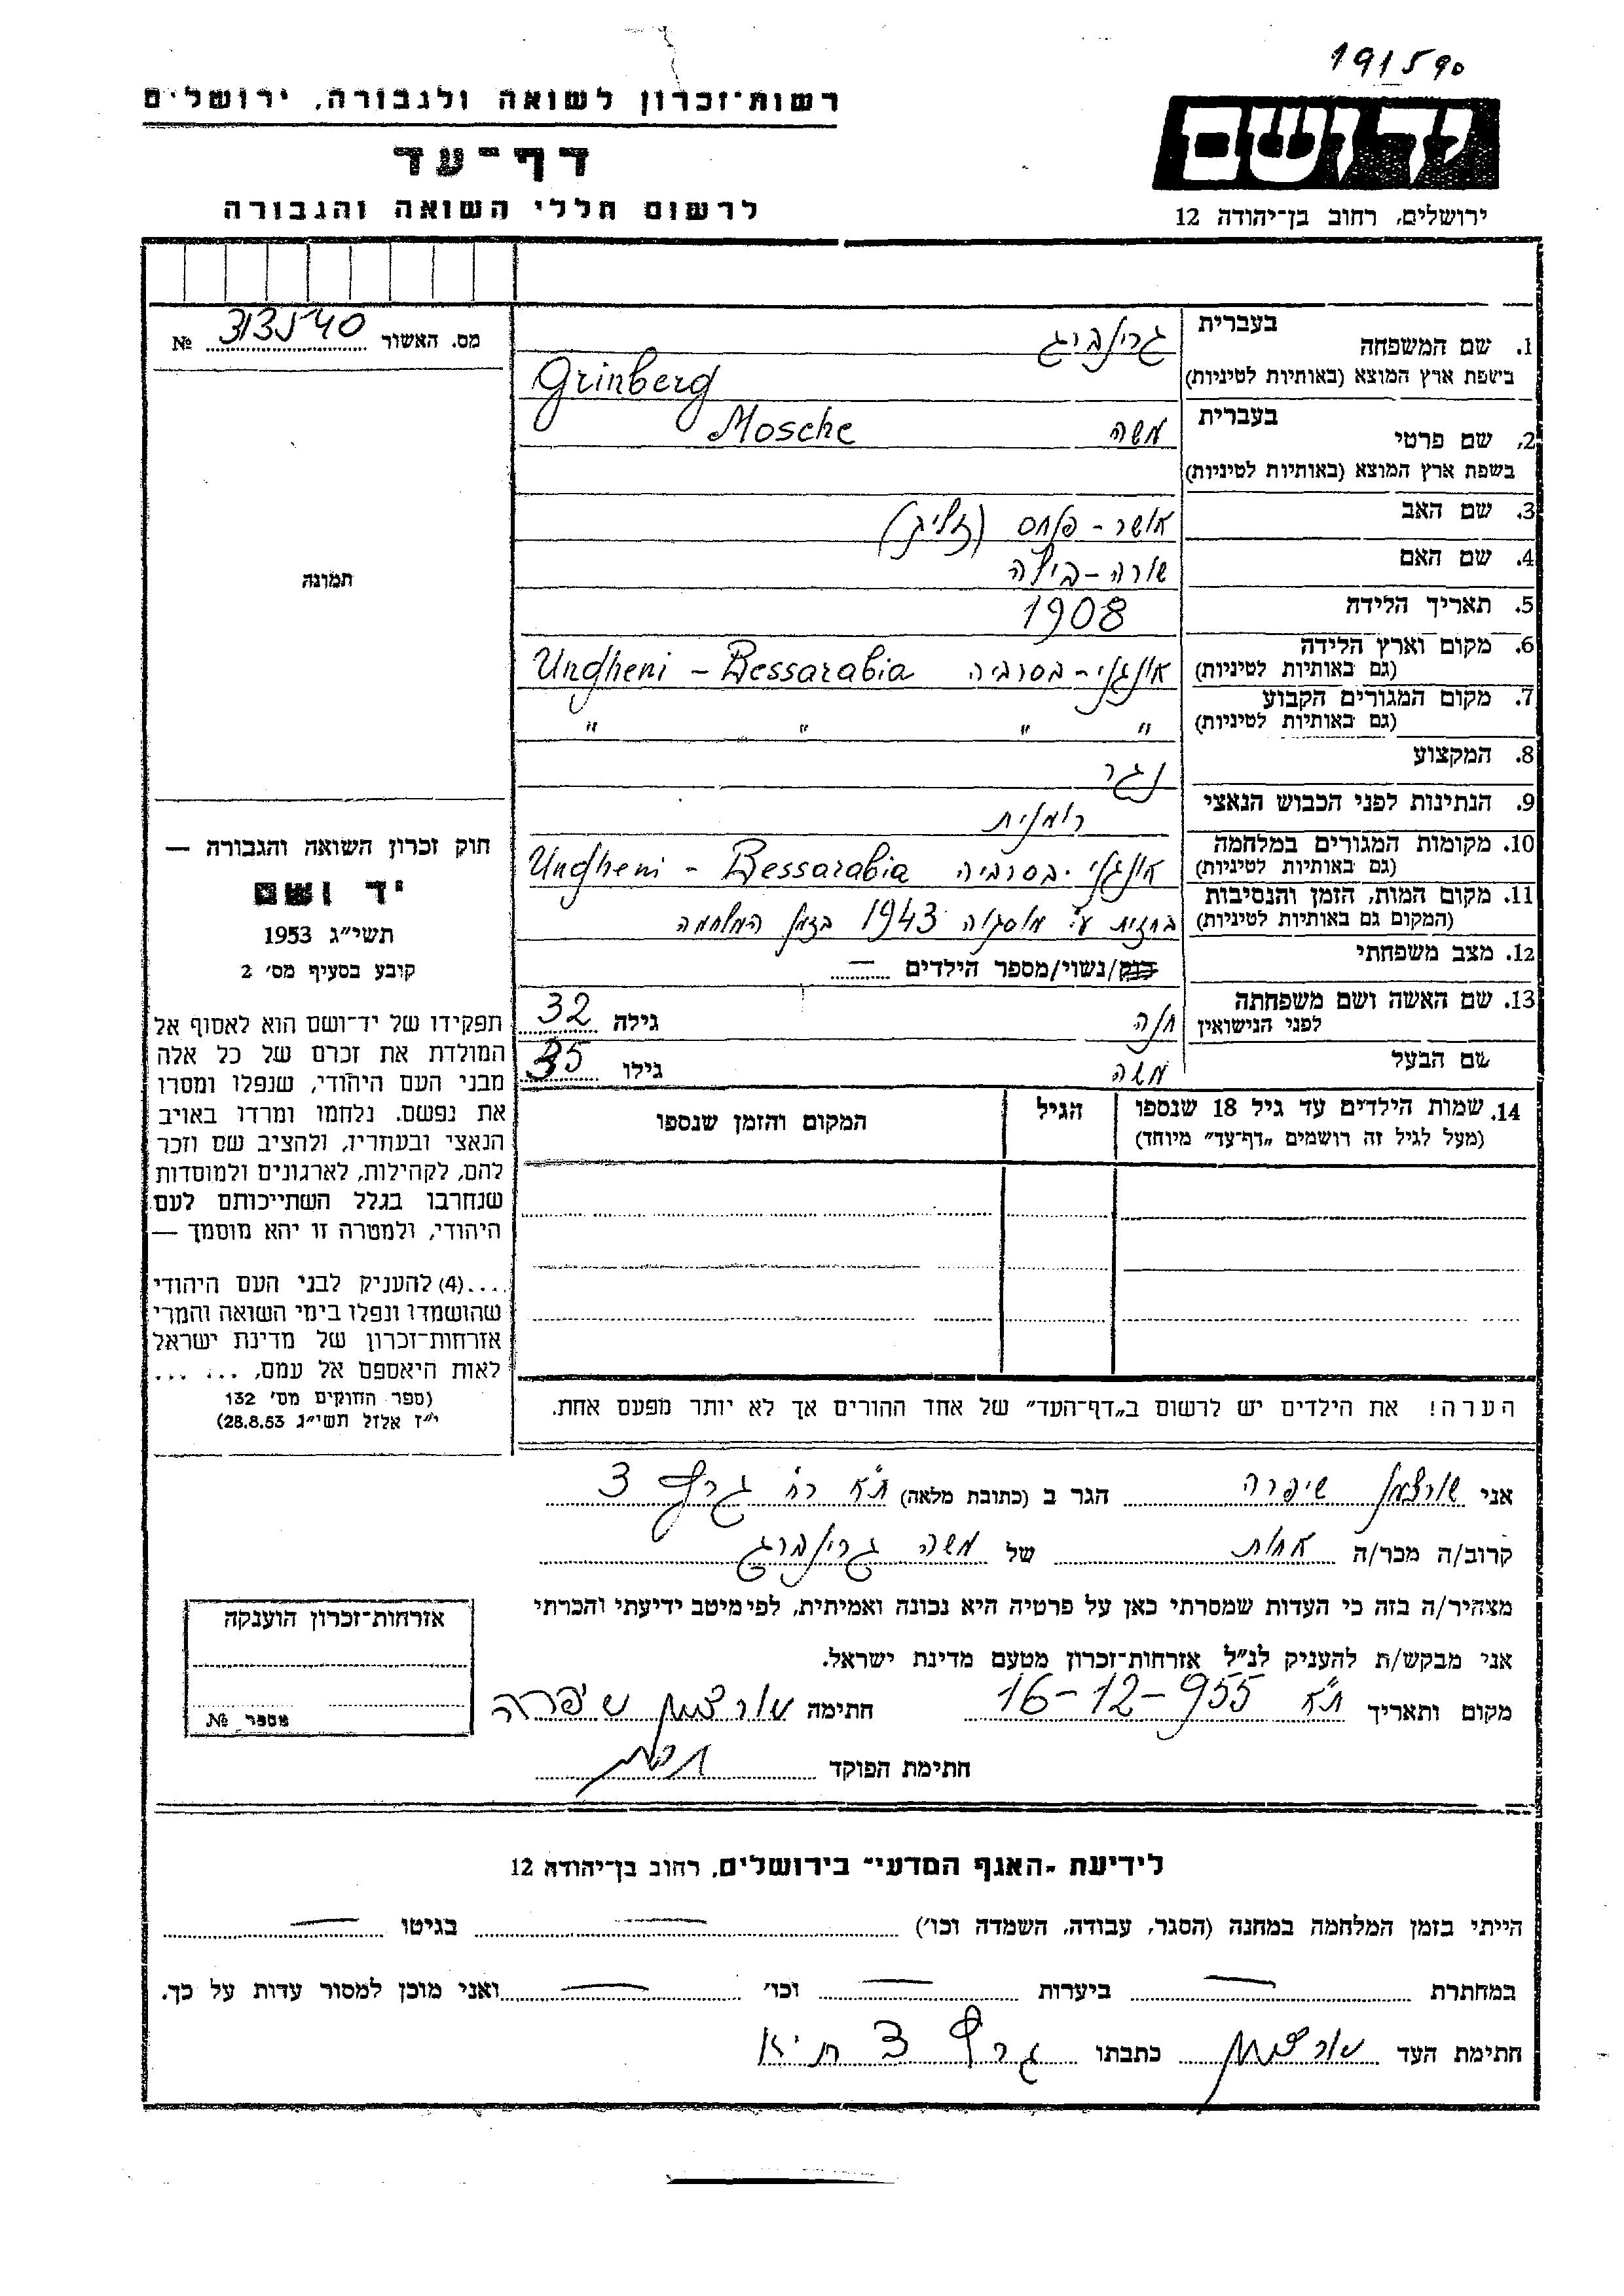 191590
רשות־זכרון לשואה ולגבורה, ירושלים
דף־עד
לרשום חללי השואה והגבורה
יד ושם
ירושלים, רחוב בן־יהודה 12
מס. האשור 313540 №
תמונה
חוק זכרון השואה והגבורה —
יד ושם
תשי״ג 1953
קובע בסעיף מס׳ 2
תפקידו של יד־ושם הוא לאסוף אל
המולדת את זכרם של כל אלה
מבני העם היהודי, שנפלו ומסרו
את נפשם, נלחמו ומרדו באויב
הנאצי ובעוזריו, ולהציב שם וזכר
להם, לקהילות, לארגונים ולמוסדות
שנחרבו בגלל השתייכותם לעם
היהודי, ולמטרה זו יהא מוסמך —
....(4) להעניק לבני העם היהודי
שהושמדו ונפלו בימי השואה והמרי
אזרחות־זכרון של מדינת ישראל
לאות היאספם אל עמם, ... ...
(ספר החוקים מס׳ 132
י״ז אלול תשי״ג 28.8.53)
1. שם המשפחה בעברית גרינברג
בשפת ארץ המוצא (באותיות לטיניות) Grinberg
2. שם פרטי בעברית משה Mosche
בשפת ארץ המוצא (באותיות לטיניות)
3. שם האב אשר - פנחס (זליק)
4. שם האם שרה - ביילה
5. תאריך הלידה 1908
6. מקום וארץ הלידה אונגני - בסרביה Ungheni - Bessarabia
(גם באותיות לטיניות)
7. מקום המגורים הקבוע " " " "
(גם באותיות לטיניות)
8. המקצוע נגר
9. הנתינות לפני הכבוש הנאצי רומנית
10. מקומות המגורים במלחמה אונגני - בסרביה Ungheni - Bessarabia
(גם באותיות לטיניות)
11. מקום המות, הזמן והנסיבות בחזית ע״י מוסקוה 1943 בזמן המלחמה
(המקום גם באותיות לטיניות)
12. מצב משפחתי רווק/נשוי/מספר הילדים —
13. שם האשה ושם משפחתה חנה גילה 32
לפני הנישואין
שם הבעל משה גילו 35
14. שמות הילדים עד גיל 18 שנספו הגיל המקום והזמן שנספו
(מעל לגיל זה רושמים „דף־עד״ מיוחד)
הערה! את הילדים יש לרשום ב„דף־העד״ של אחד ההורים אך לא יותר מפעם אחת.
אני שורצמן שיפרה הגר ב (כתובת מלאה) ת״א רח׳ גרץ 3
קרוב/ה מכר/ה אחות של משה גרינברג
מצהיר/ה בזה כי העדות שמסרתי כאן על פרטיה היא נכונה ואמיתית, לפי מיטב ידיעתי והכרתי
אני מבקש/ת להעניק לנ״ל אזרחות־זכרון מטעם מדינת ישראל.
מקום ותאריך ת״א 16-12-955 חתימה שורצמן שיפרה
חתימת הפוקד
אזרחות־זכרון הוענקה
מספר №
לידיעת ״האגף המדעי״ בירושלים, רחוב בן־יהודה 12
הייתי בזמן המלחמה במחנה (הסגר, עבודה, השמדה וכו׳) — בגיטו —
במחתרת — ביערות — וכו׳ — ואני מוכן למסור עדות על כך.
חתימת העד שורצמן כתבתו גרץ 3 ת״א